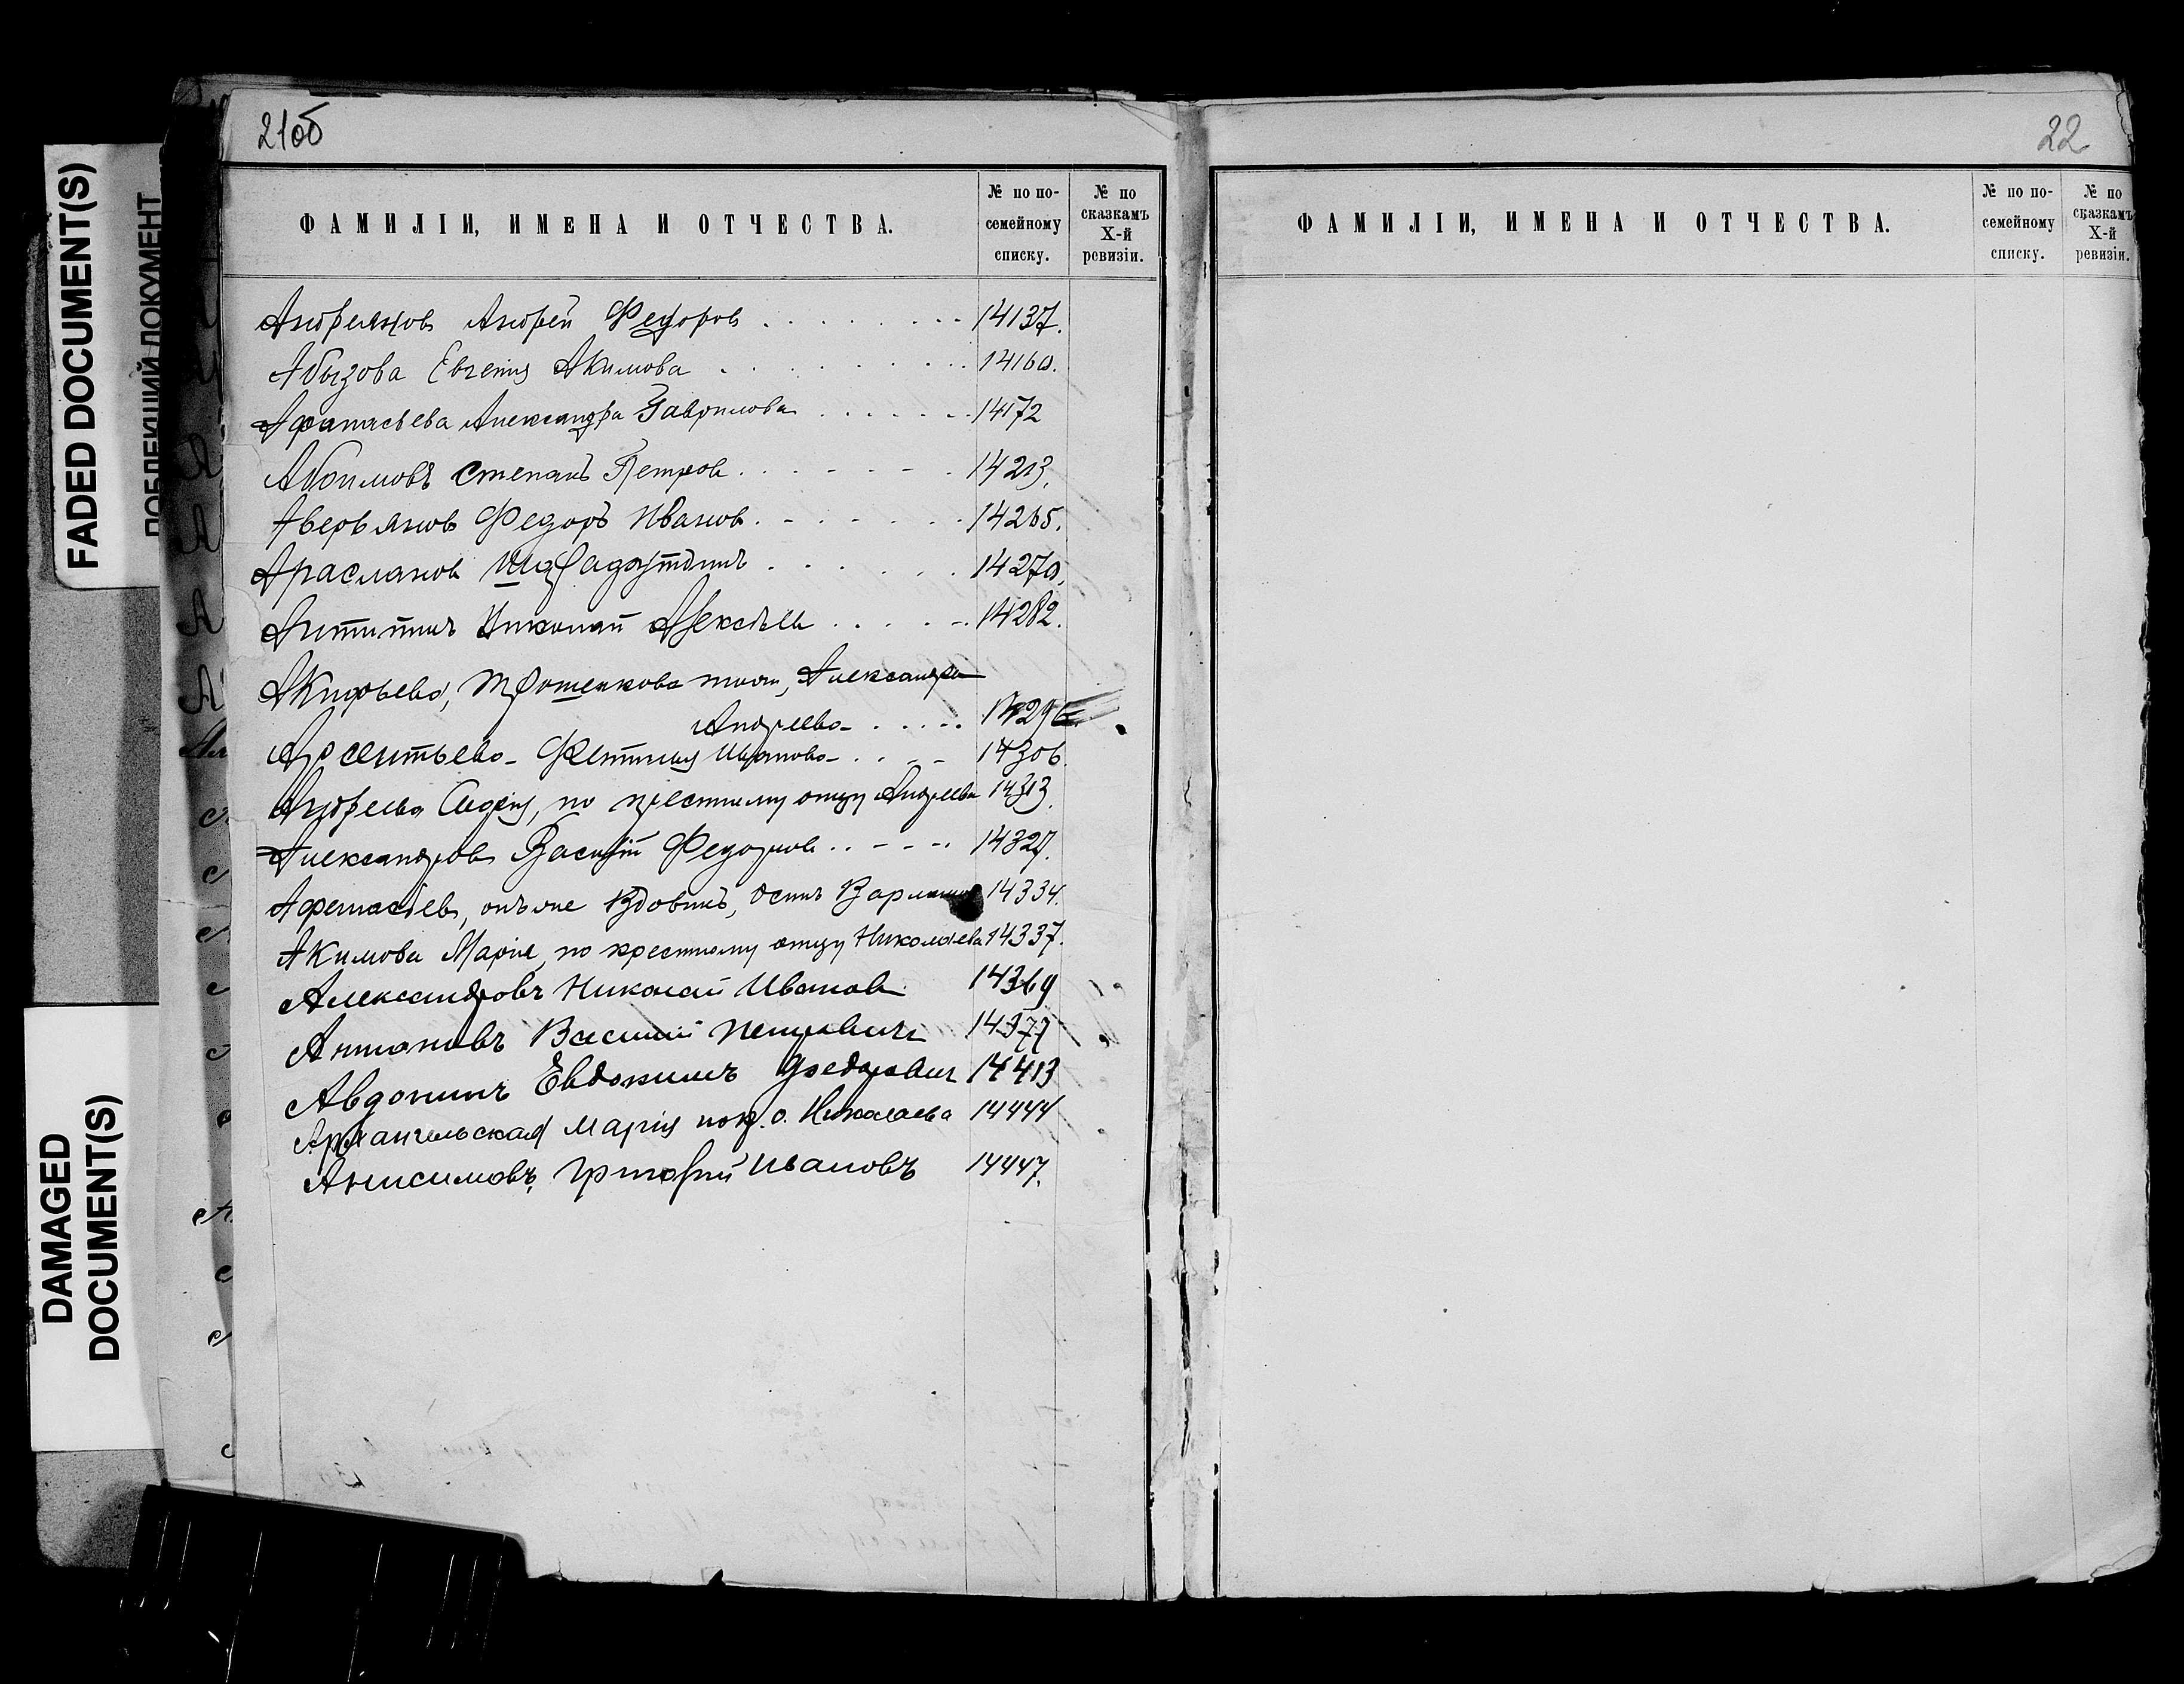 FADED DOCUMENT(S)
ДОКУМЕНТ
DAMAGED
DOCUMENT(S)
21об
ФАМИЛІИ, ИМЕНА И ОТЧЕСТВА.
№ по по-
семейному
списку.
№ по
сказкамъ
X-й
ревизіи.
Андреяновъ Андрей Федоровъ 14137.
Абызова Евгенія Акимова 14160.
Афанасьева Александра Гаврилова 14172
Абрамовъ Степанъ Петровъ 14213.
Аверьяновъ Федоръ Ивановъ 14265.
Араслановъ 14270.
Антипинъ Николай Алексѣевъ 14282.
Акифьева, Трошенкова тож, Александра
Андреева 14296.
Арсентьева Фетинья Иванова 14306.
Андреева по крестному отцу Андреева 14313.
Александровъ Василій Федоровъ 14327.
Афанасіевъ, онъ же Вдовинъ, Осипъ 14334.
Акимова Марія, по крестному отцу Николаева 14337.
Александровъ Николай Ивановъ 14369
Антоновъ Василий Петровичъ 14377
Авдонинъ Евдокимъ Федоровичъ 14413
Архангельская Марія по кр. о. Николаева 14444
Анисимовъ, Григорій Ивановъ 14447.
22
ФАМИЛІИ, ИМЕНА И ОТЧЕСТВА.
№ по по-
семейному
списку.
№ по
сказкамъ
X-й
ревизіи.